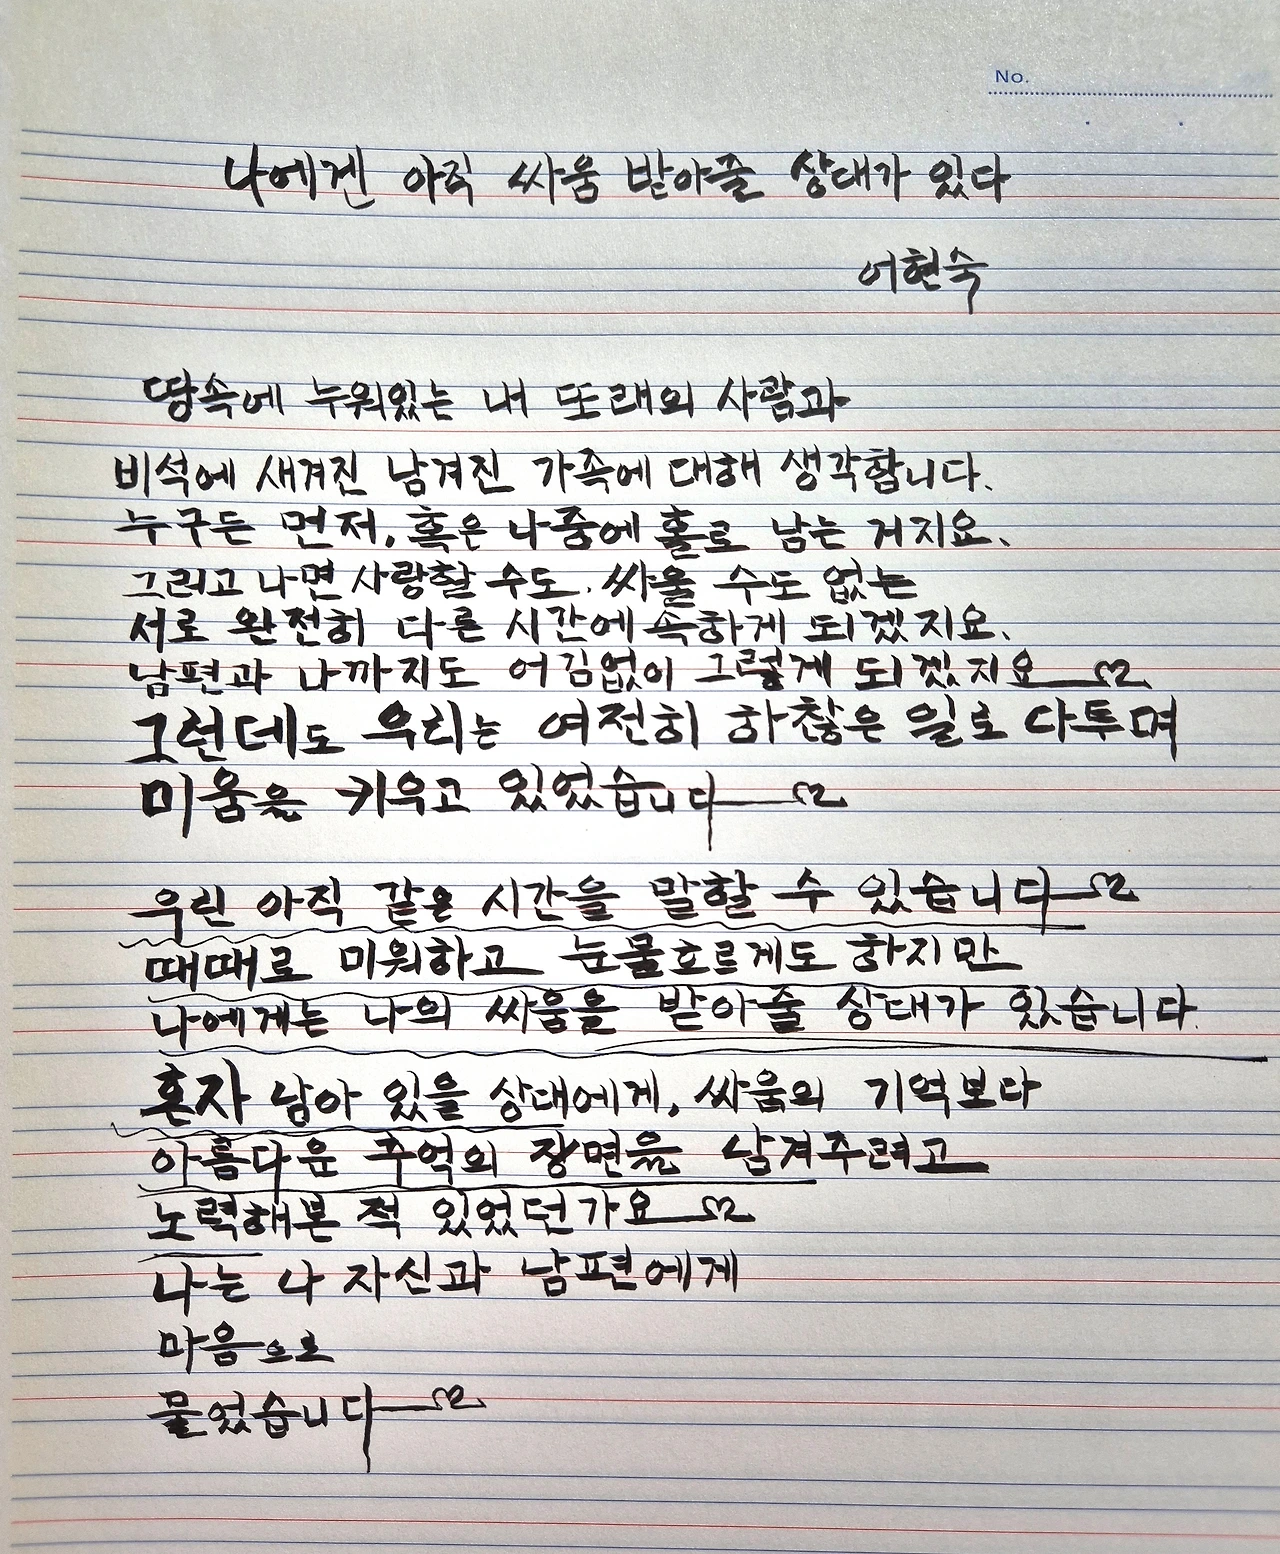 No.
나에겐 아직 싸움 받아줄 상대가 있다
어현숙
땅속에 누워있는 내 또래의 사람과
비석에 새겨진 남겨진 가족에 대해 생각합니다.
누구든 먼저, 혹은 나중에 홀로 남는 거지요.
그리고 나면 사랑할 수도. 싸울 수도 없는
서로 완전히 다른 시간에 속하게 되겠지요.
남편과 나까지도 어김없이 그렇게 되겠지요
그런데도 우리는 여전히 하찮은 일로 다투며
미움을 키우고 있었습니다
우린 아직 같은 시간을 말할 수 있습니다
때때로 미워하고 눈물흐르게도 하지만
나에게는 나의 싸움을 받아줄 상대가 있습니다.
혼자 남아 있을 상대에게, 싸움의 기억보다
아름다운 추억의 장면을 남겨주려고
노력해본 적 있었던가요
나는 나 자신과 남편에게
마음으로
물었습니다